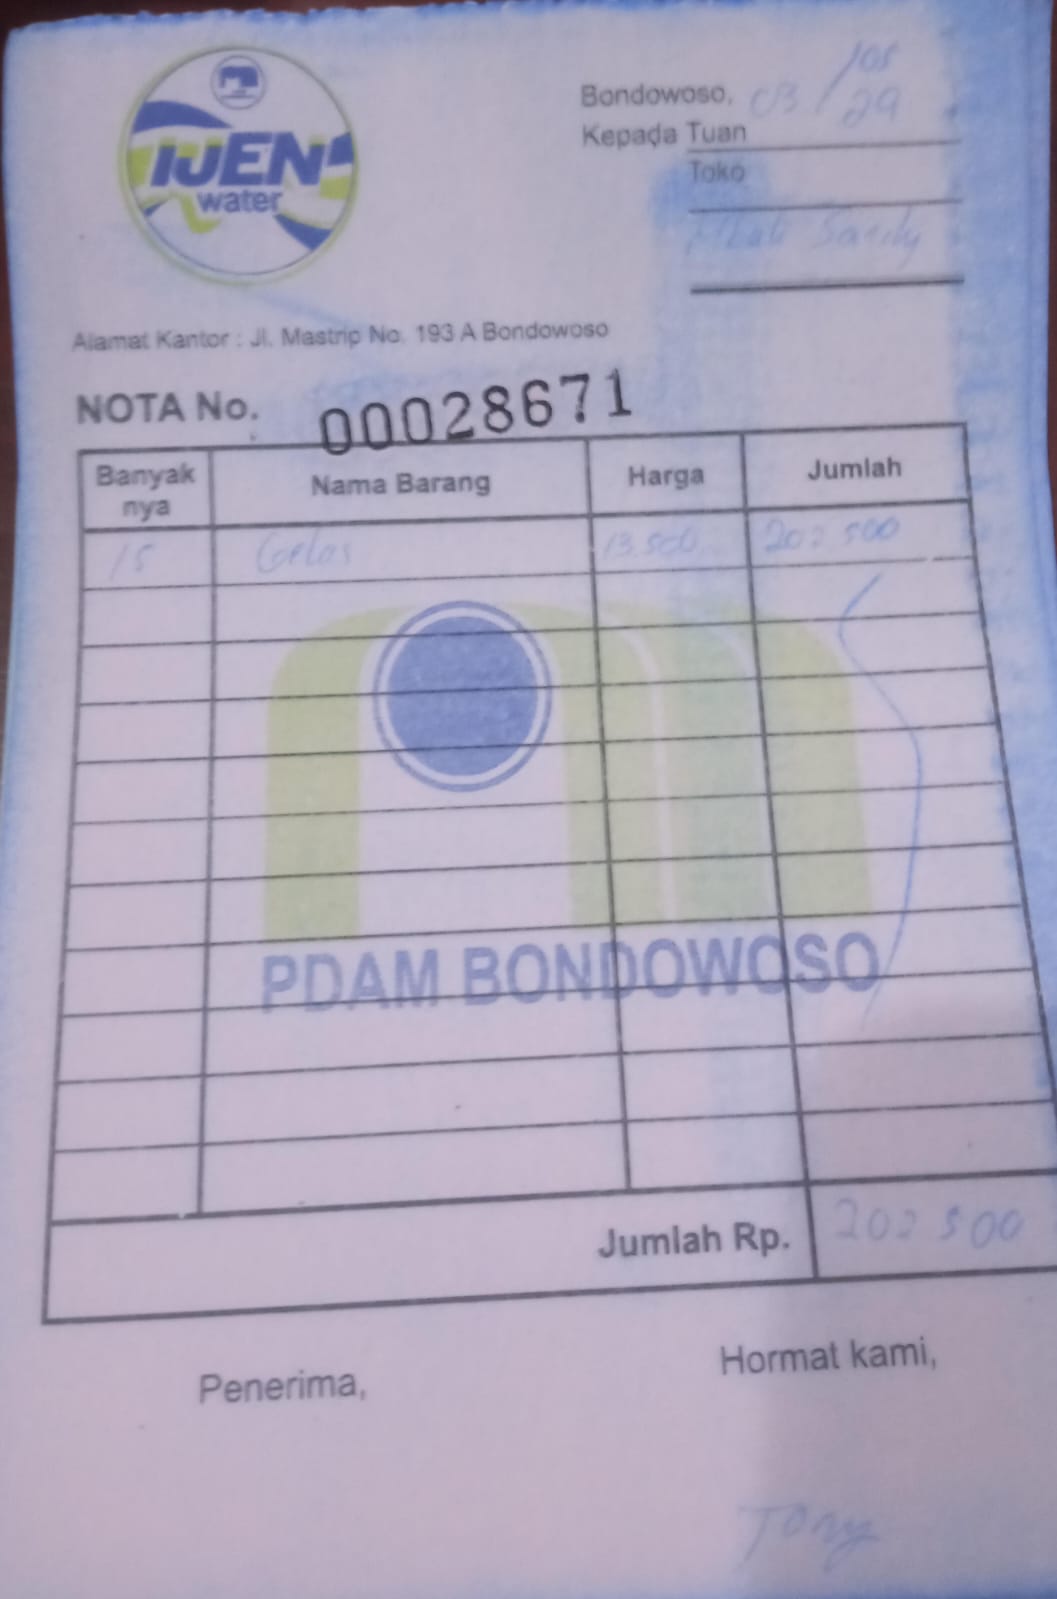 IJEN
water
Bondowoso, 03/05
29
Kepada Tuan
Toko
Sandy
Alamat Kantor : Jl. Mastrip No. 193 A Bondowoso
NOTA No. 00028671
Banyak nya Nama Barang Harga Jumlah
15 Gelas 13.500 202 500
PDAM BONDOWOSO
Jumlah Rp. 202 500
Penerima, Hormat kami,
Tony